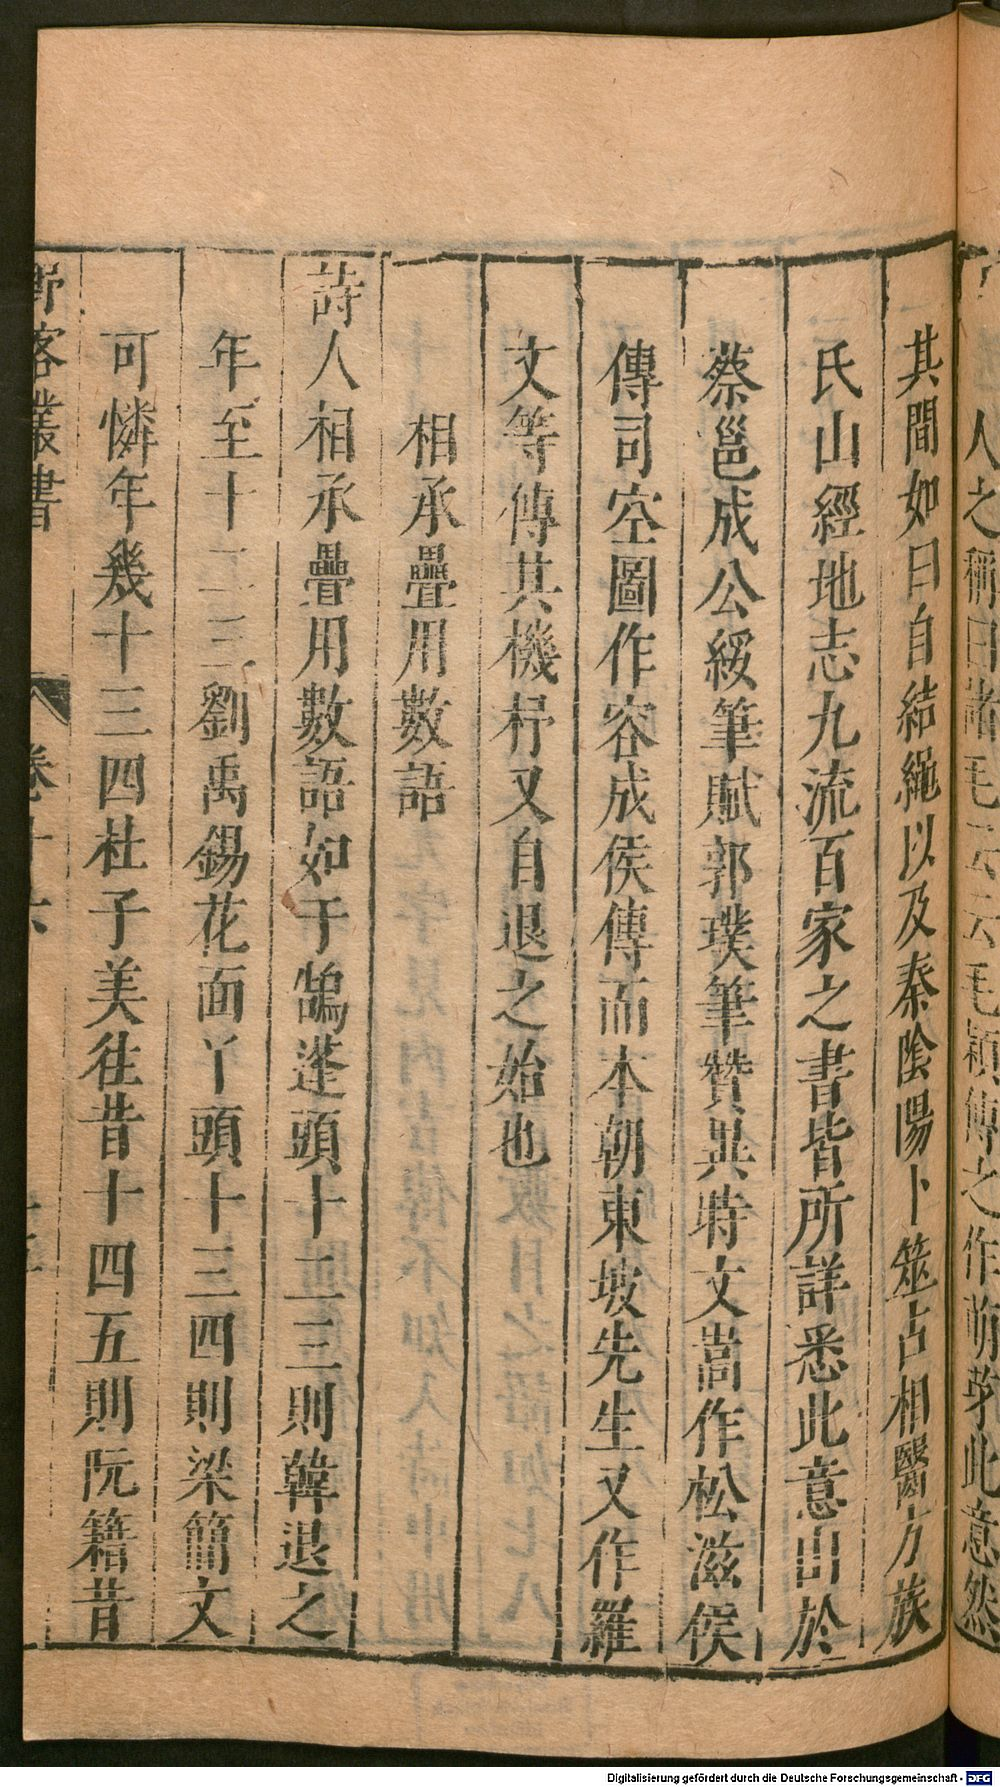 人之稱曰諸毛云云毛穎傳之作萌芽此意然
其間如曰自結繩以及秦陰陽卜筮占相醫方族
氏山經地志九流百家之書皆所詳悉此意出於
蔡邕成公綏筆賦郭璞筆贊異時文嵩作松滋侯
傳司空圖作容成侯傳而本朝東坡先生又作羅
文等傳其機杼又自退之始也
相承疊用數語
詩人相承疊用數語如于鵠蓬頭十二三則韓退之
年至十二三劉禹錫花面丫頭十三四則梁簡文
可憐年幾十三四杜子美往昔十四五則阮籍昔
野客叢書
卷十六
Digitalisierung gefördert durch die Deutsche Forschungsgemeinschaft - DFG